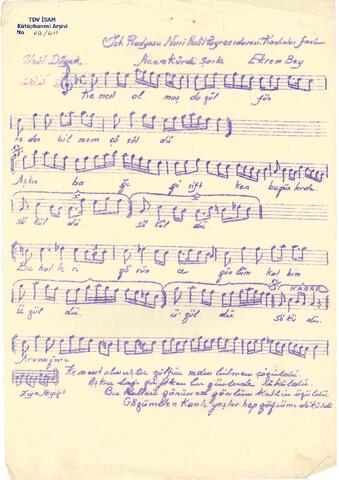 TDV İSAM
Kütüphanesi Arşivi
No
İst Radyosu Nuri Halil Poyraz idaresi. Kadınlar faslı
Usûl Düyek. Acemkürdi Şarkı Ekrem Bey
Ke ment ol muş da gül fün
ne den bil mem çö zül dü
Aşkın ba ğı gi rift ken bugün lerde
sö kül dü sö kül dü
Bu hal le ri gö rün ce gönlüm kal bim
KARAR
ü zül dü ü zül dü sö kü dü
Aranağme
Kement olmuş
neden bilmem çözüldü
Aşkın bağı girift ken bu günlerde söküldü
Bu halleri görünce gönlüm kalbim üzüldü
Gözümden Kanlı yaşlar hep göğsüme döküldü